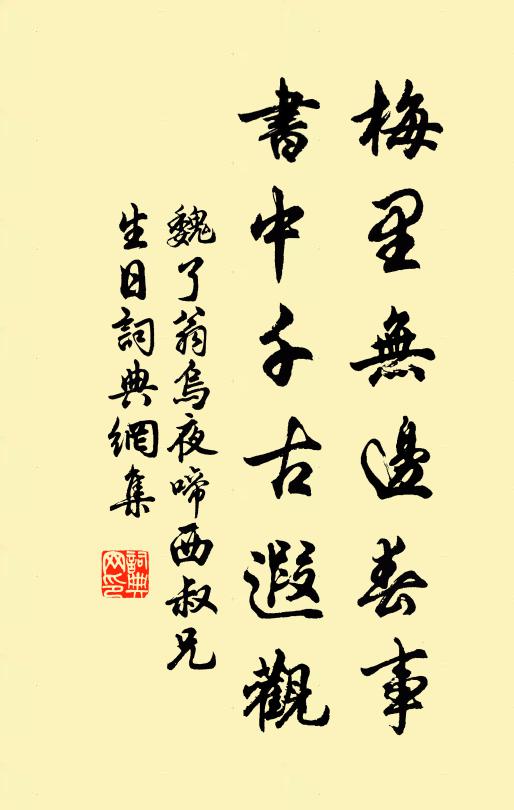 梅里無邊春事
書中千古遐觀
魏了翁烏夜啼西叔兄
生日詞典網集
詞典網印